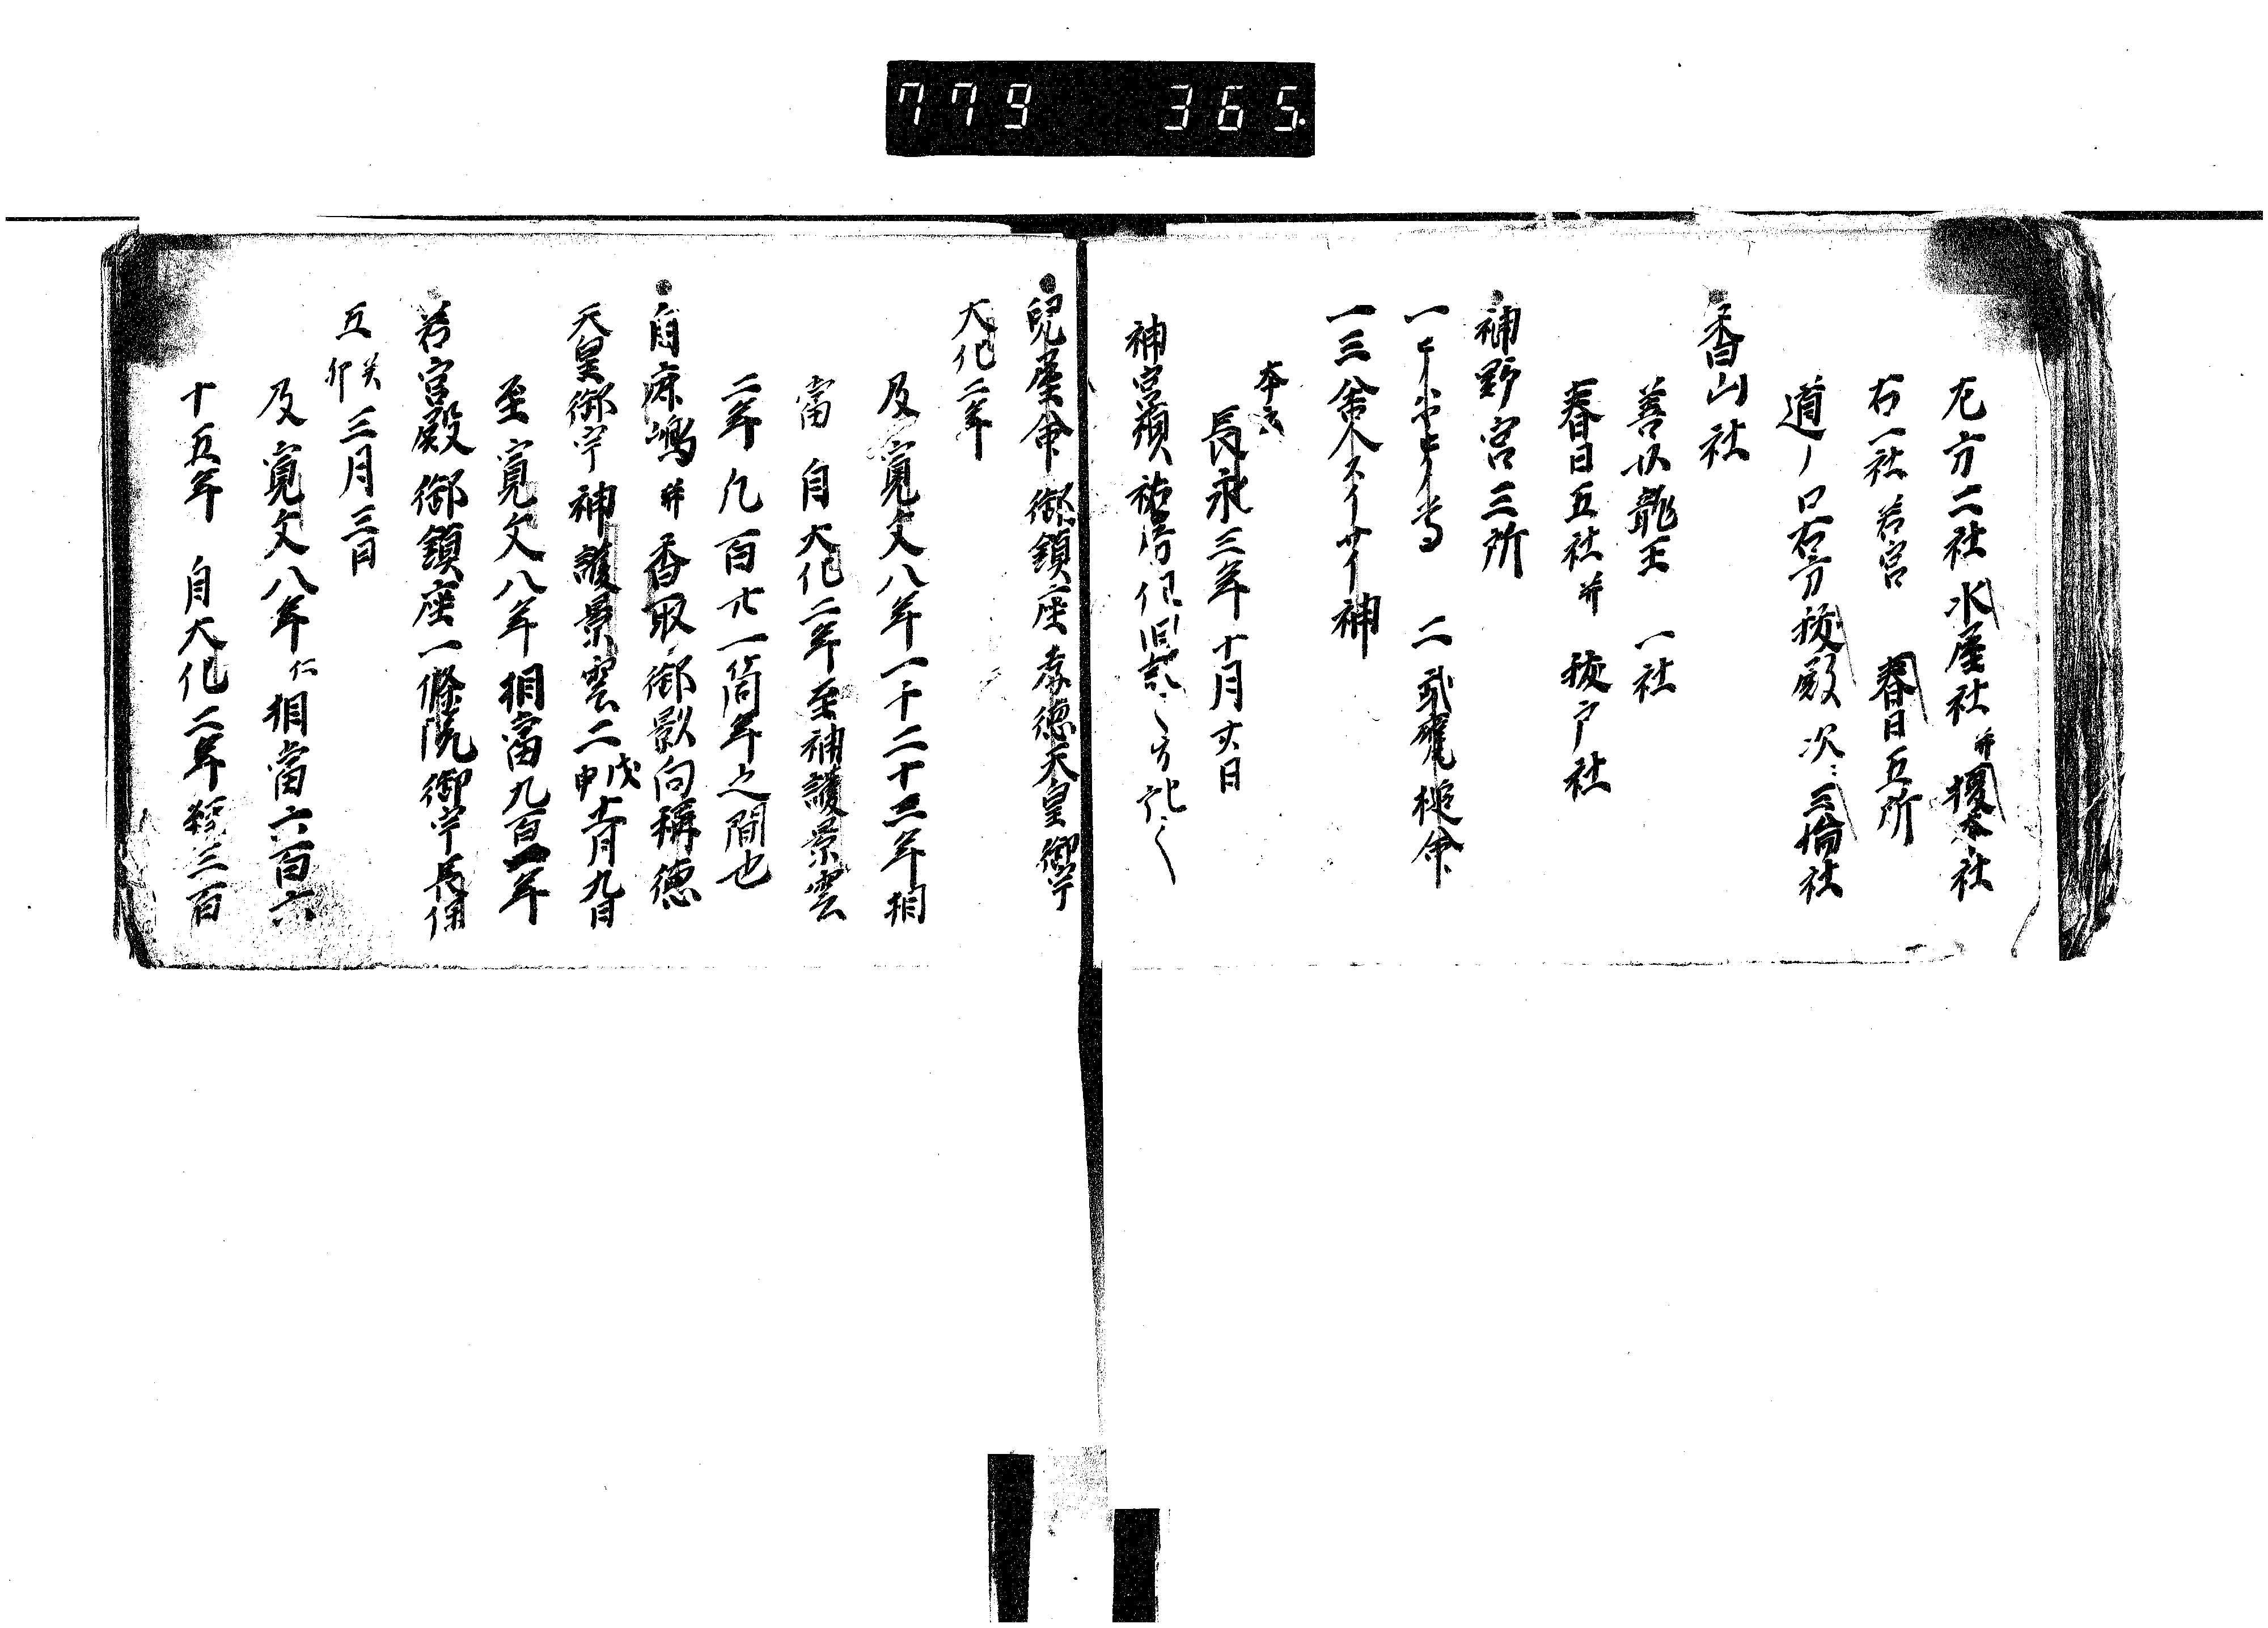 779 365.
左方二社 水屋社 并 榎本社
右一社若宮 春日五所
道ノ口右方 祓殿 次ニ三輪社
香山社
善女龍王 一社
春日五社并 祓戸社
神野宮三所
二 武甕槌命
神
本云
長永三年十月 日
神宮預祐
兒屋命 御鎮座 孝徳天皇御宇
大化二年
及寛文八年一千二十三年相
當 自大化二年至神護景雲
二年 凡百廿一箇年之間也
自麻嶋并香取御影向稱徳
天皇御宇 神護景雲二戊申十一月九日
至寛文八年相當九百一年
若宮殿御鎮座一條院御宇長保
五癸卯三月三日
及寛文八年仁相當六百六
十五年 自大化二年 三百